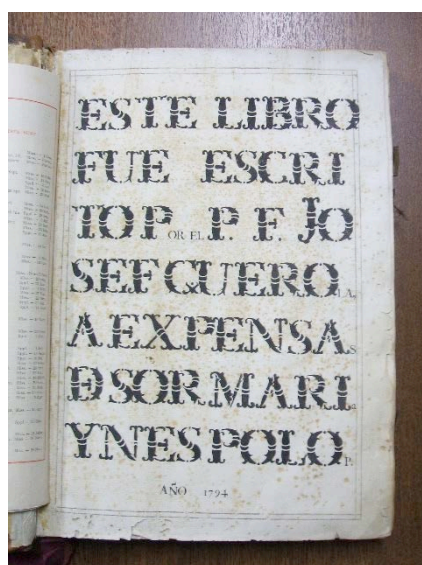 ESTE LIBRO
FUE ESCRI
TO P OR EL P. F. JO
SEF CUERO LA
A EXPENSAS
D SOR MARI
Y NES POLO P.
AÑO 1794